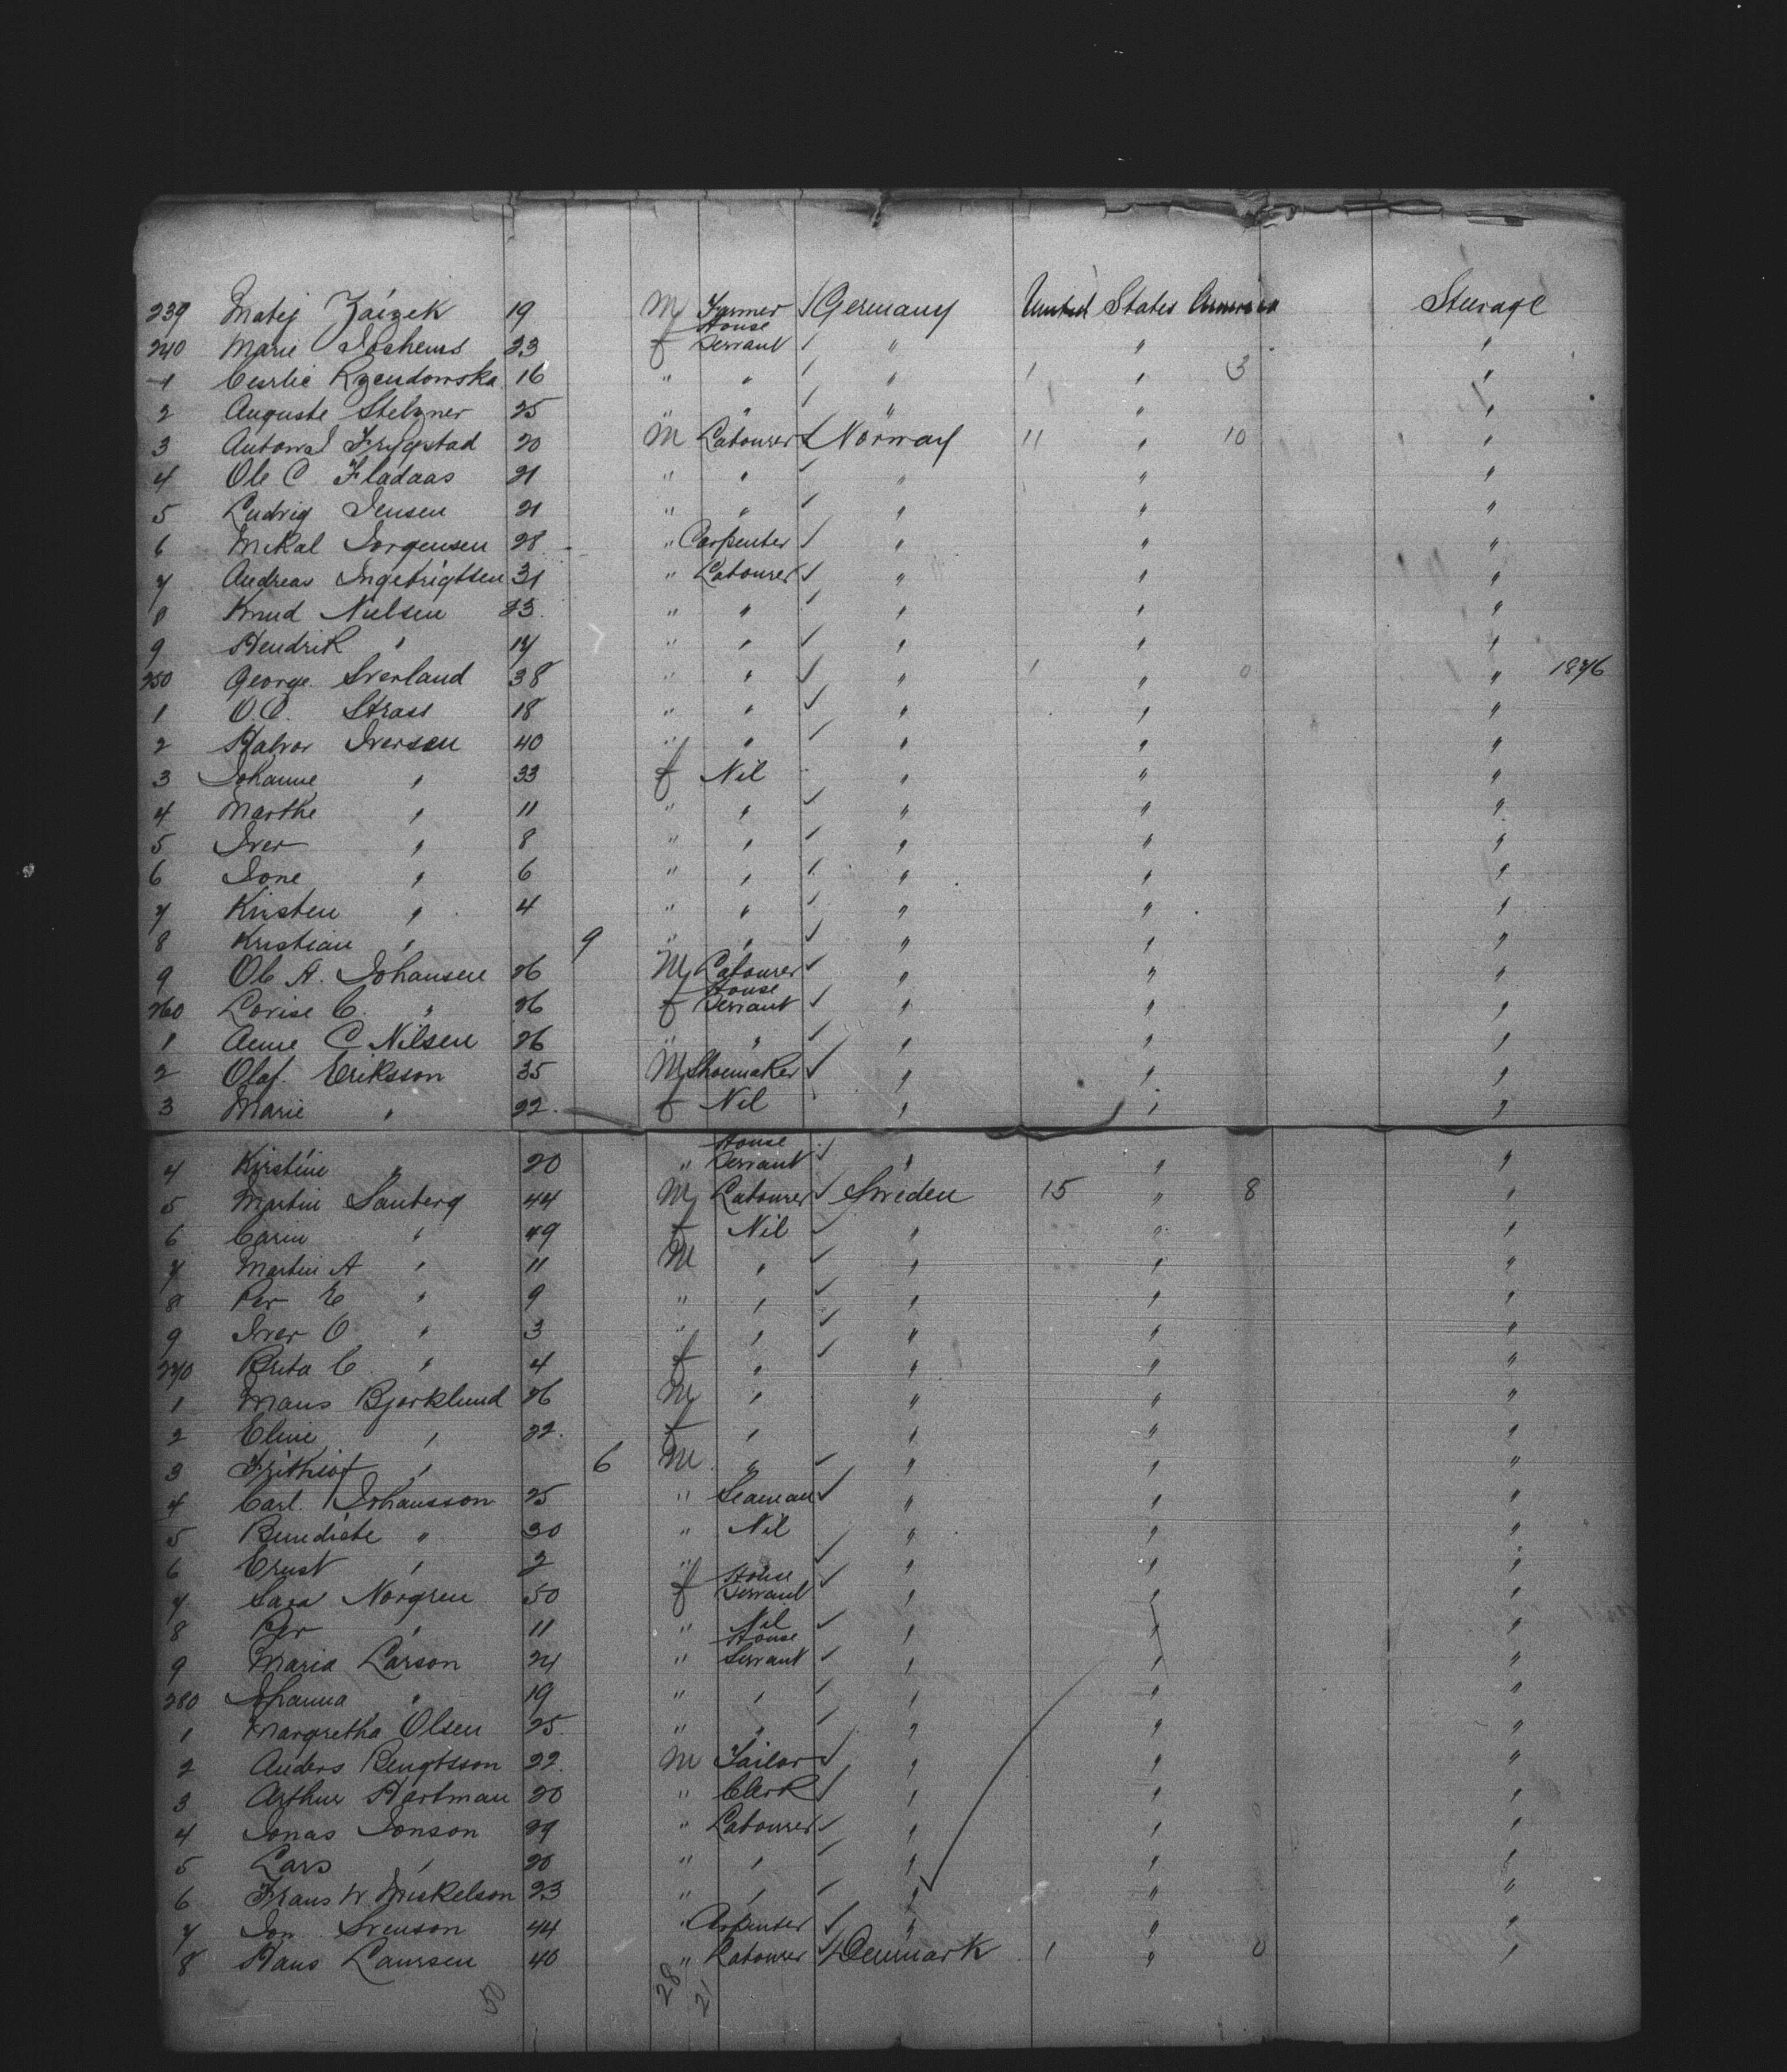 239 Matej Zaizek 19 M Farmer ✓ Germany United States America Steerage
240 Marie Jochems 23 f House Servant ✓ " " "
1 Ceslie Rzendowska 16 " " ✓ " 1 " 3 "
2 Auguste Stelzner 25 " " ✓ " " "
3 Frygstad 20 M Labourer ✓ Norway 11 " 10 "
4 Ole C. Fladaas 21 " " ✓ " " "
5 Ludvig Jensen 21 " " ✓ " " "
6 Mikal Jorgensen 28 " Carpenter ✓ " " "
7 Andreas Ingebrigtsen 31 " Labourer ✓ " " "
8 Knud Nielsen 23 " " ✓ " " "
9 Hendrik " 17 " " ✓ " " "
250 George Sverland 38 " " ✓ " 1 " 0 " 1876
1 O.C. Strass 18 " " ✓ " " "
2 Halvor Iversen 40 " " ✓ " " "
3 Johanne " 33 f Nil " " "
4 Marthe " 11 " " ✓ " " "
5 Iver " 8 " " ✓ " " "
6 Jone " 6 " " ✓ " " "
7 Kristen " 4 " " ✓ " " "
8 Kristian " 9 " " ✓ " " "
9 Ole A. Johansen 26 M Labourer ✓ " " "
260 Lovise C. " 26 f House Servant ✓ " " "
1 Anne C Nilsen 26 " " ✓ " " "
2 Olaf Eriksson 35 M Shoemaker ✓ " " "
3 Marie " 22 f Nil " " "
4 Kirstine " 20 " House Servant ✓ " " "
5 Martin Sanberg 44 M Labourer ✓ Sweden 15 " 8 "
6 Carin " 49 f Nil ✓ " " "
7 Martin A " 11 M " ✓ " " "
8 Per E " 9 " " ✓ " " "
9 Iver O " 3 " " ✓ " " "
270 Brita C " 4 f " ✓ " " "
1 Mans Bjorklund 26 M " " " "
2 Eline " 22 f " " " "
3 Frithiof " 6 M " ✓ " " "
4 Carl Johansson 25 " Seaman ✓ " " "
5 Benedicte " 30 " Nil " " "
6 Ernst " 2 " ✓ " " "
7 Sara Norgren 50 f House Servant ✓ " " "
8 Per " 11 " Nil ✓ " " "
9 Maria Larson 24 " House Servant ✓ " " "
280 Johanna " 19 " " ✓ " " "
1 Margretha Olsen 25 " " ✓ " " "
2 Anders Bengtsson 22 M Tailor ✓ " " "
3 Arthur Hartman 20 " Clerk ✓ " " "
4 Jonas Jonson 29 " Labourer ✓ " " "
5 Lars " 20 " " ✓ " " "
6 Frans W. Miskelson 23 " " ✓ " " "
7 Jon Svenson 44 " Carpenter ✓ " " "
8 Hans Laursen 40 " Labourer ✓ Denmark 1 " 0 "
50 28 21